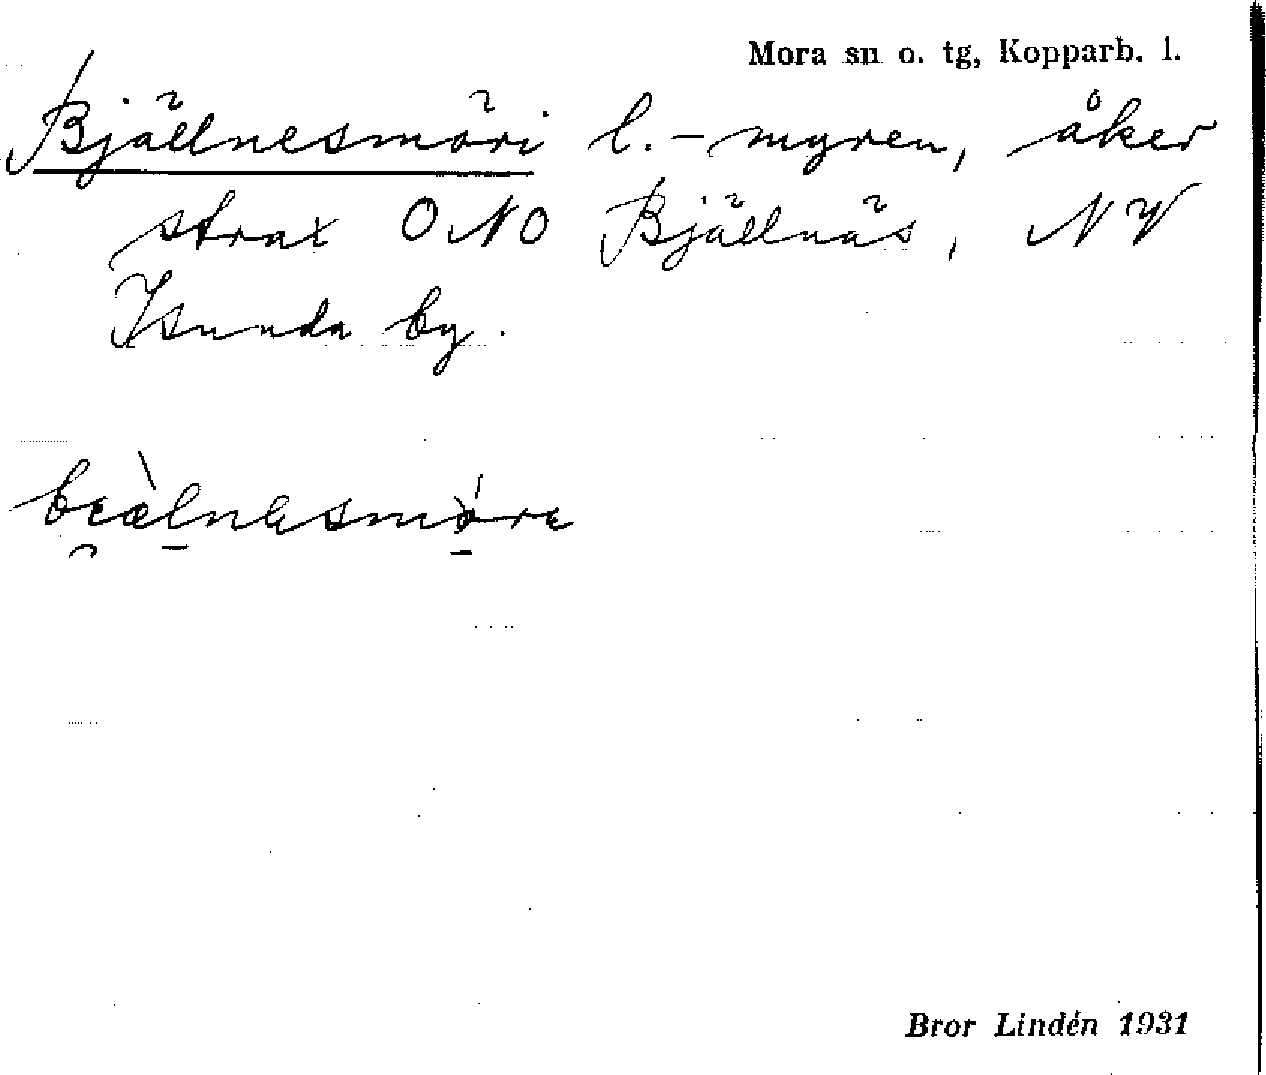 Mora sn o. tg, Kopparb. l.
Bjällnesmöri l. -myren, åker
strax ONO Bjällnäs, NV
Isunda by.
Bror Lindén 1931